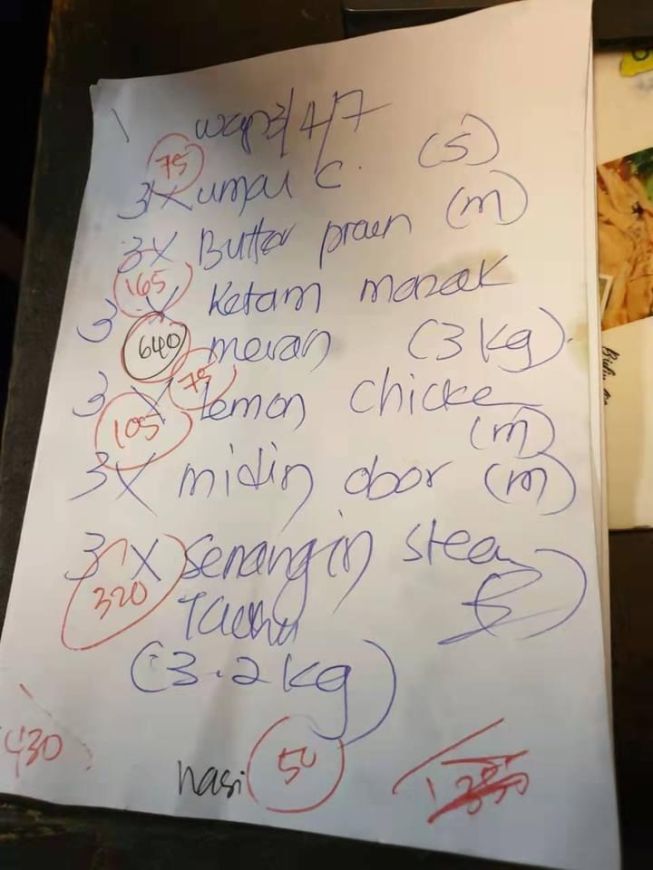 3/4/7
75
3 X umai C. (S)
3X Butter prawn (m)
165
3 X Ketam masak
640 meran (3 kg).
75
3 X lemon chicke
105 (m)
3X midin obor (m)
3 X Senangin stea
320
(3.2 kg)
430
nasi 50